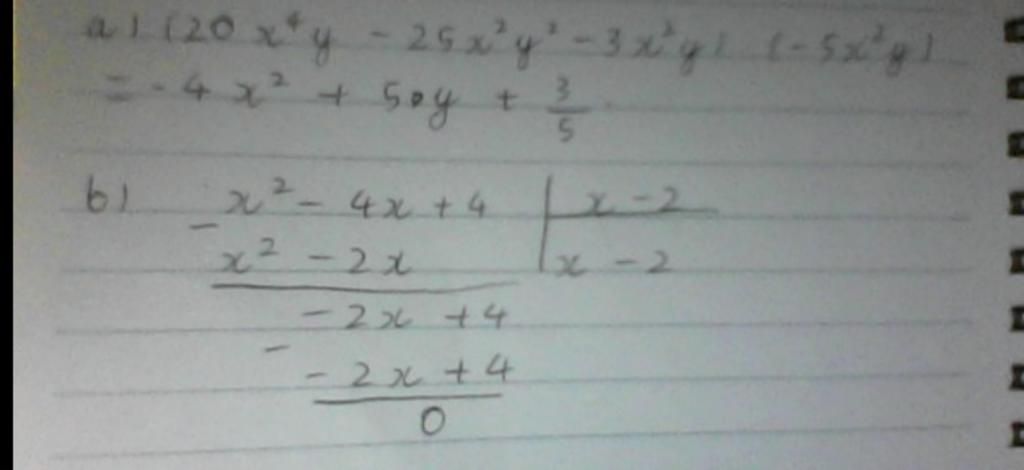 a) (20x⁴y - 25x²y² - 3x²y) (-5x²y)
= -4x² + 5y + 3/5
b) x² - 4x + 4 | x - 2
- x² - 2x | x - 2
- 2x + 4
- - 2x + 4
0